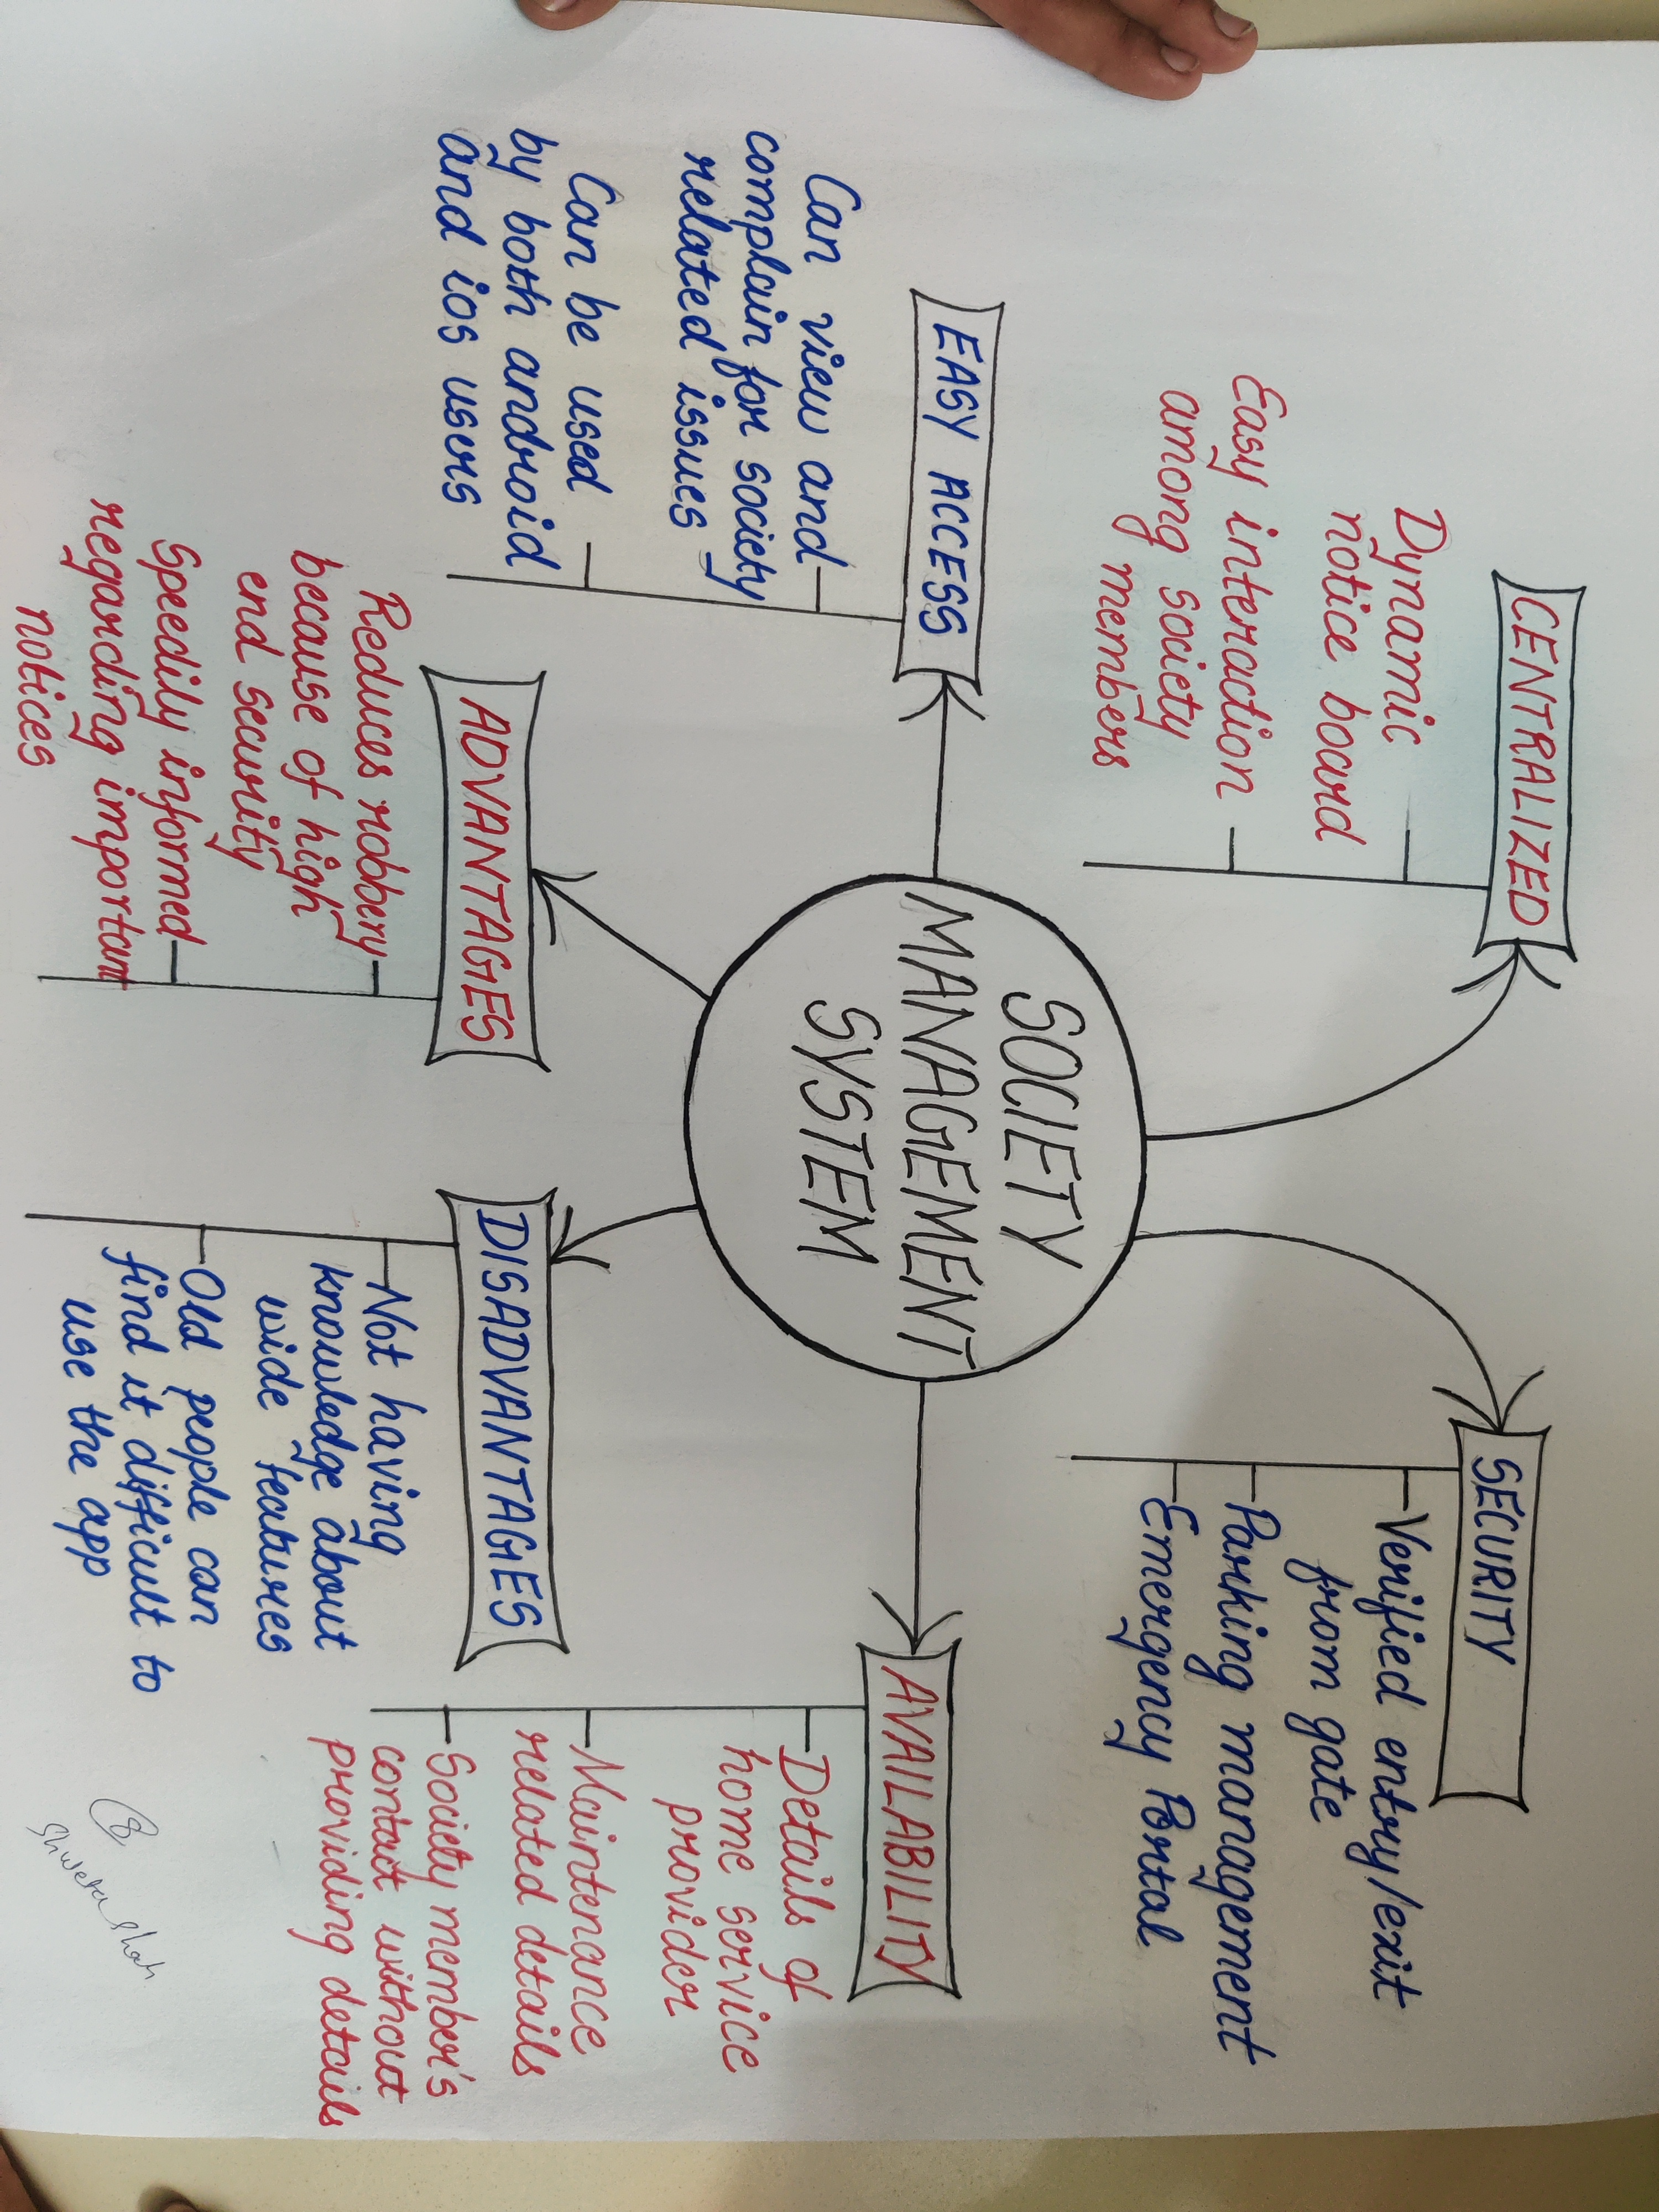 CENTRALIZED
Dynamic
notice board
Easy interaction
among society
members
SECURITY
Verified entry/exit
from gate
Parking management
Emergency Portal
SOCIETY
MANAGEMENT
SYSTEM
EASY ACCESS
Can view and
complain for society
related issues
Can be used
by both android
and ios users
AVAILABILITY
Details of
home service
provider
Maintenance
related details
Society member's
contact without
providing details
ADVANTAGES
Reduces robbery
because of high
end security
Speedily informed
regarding important
notices
DISADVANTAGES
Not having
knowledge about
wide features
Old people can
find it difficult to
use the app
8
Shweta Shah